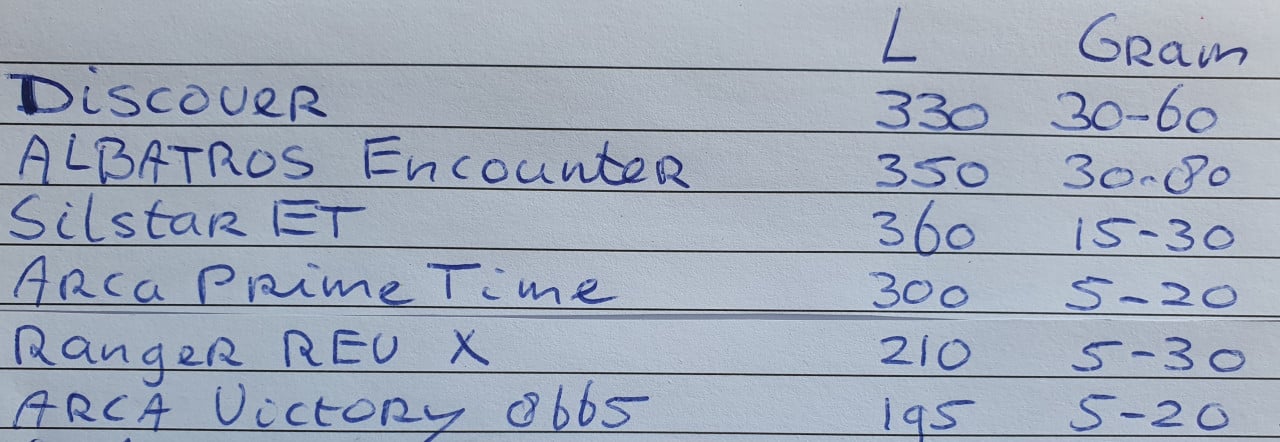 L Gram
Discover 330 30-60
ALBATROS Encounter 350 30-80
Silstar ET 360 15-30
ARca PRime Time 300 5-20
RangeR REV X 210 5-30
ARCA VictoRy 8665 195 5-20